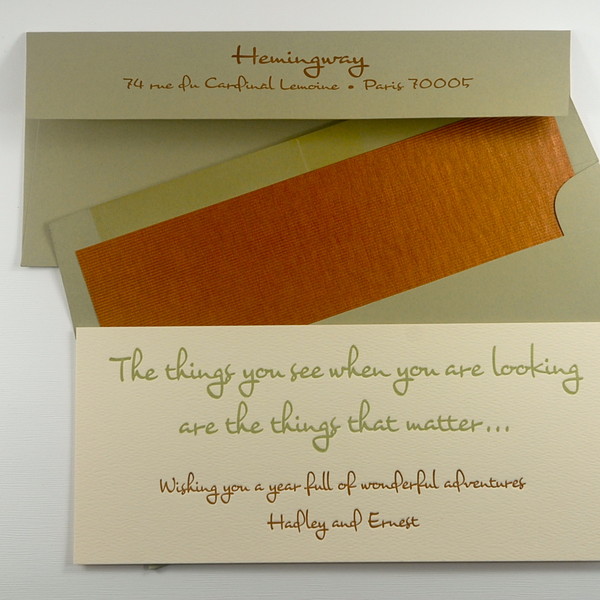 Hemingway
74 rue du Cardinal Lemoine • Paris 70005
The things you see when you are looking
are the things that matter...
Wishing you a year full of wonderful adventures
Hadley and Ernest